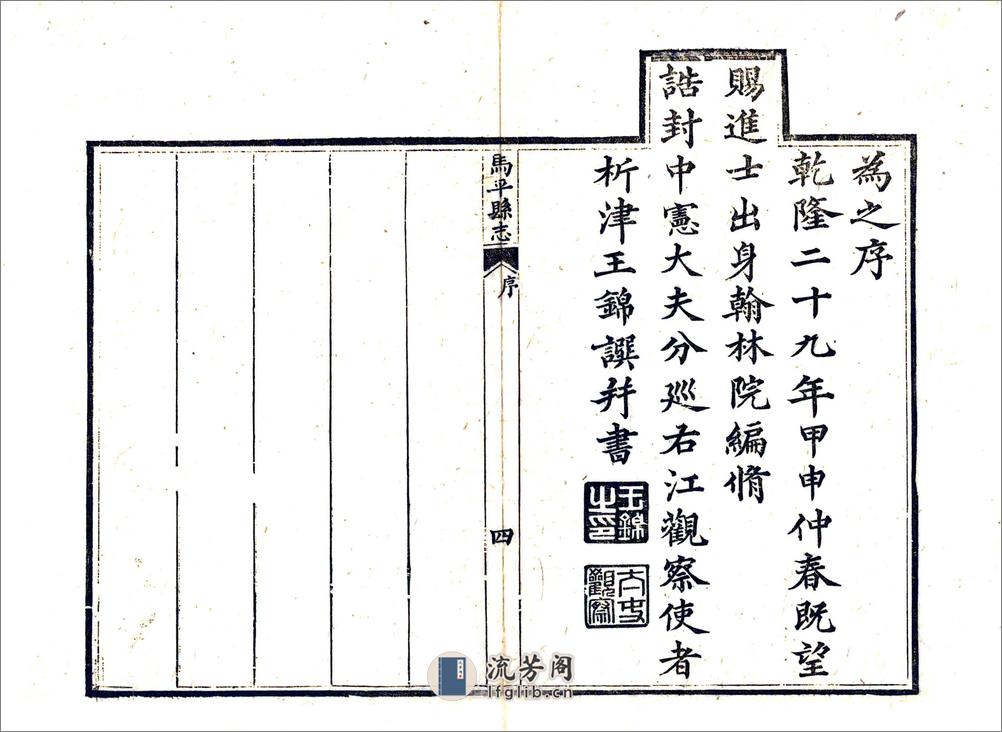 為之序
乾隆二十九年甲申仲春既望
賜進士出身翰林院編脩
誥封中憲大夫分廵右江觀察使者
析津王錦譔并書
王錦之印
太史觀察
馬平縣志
序
四
流芳阁
lfglib.cn